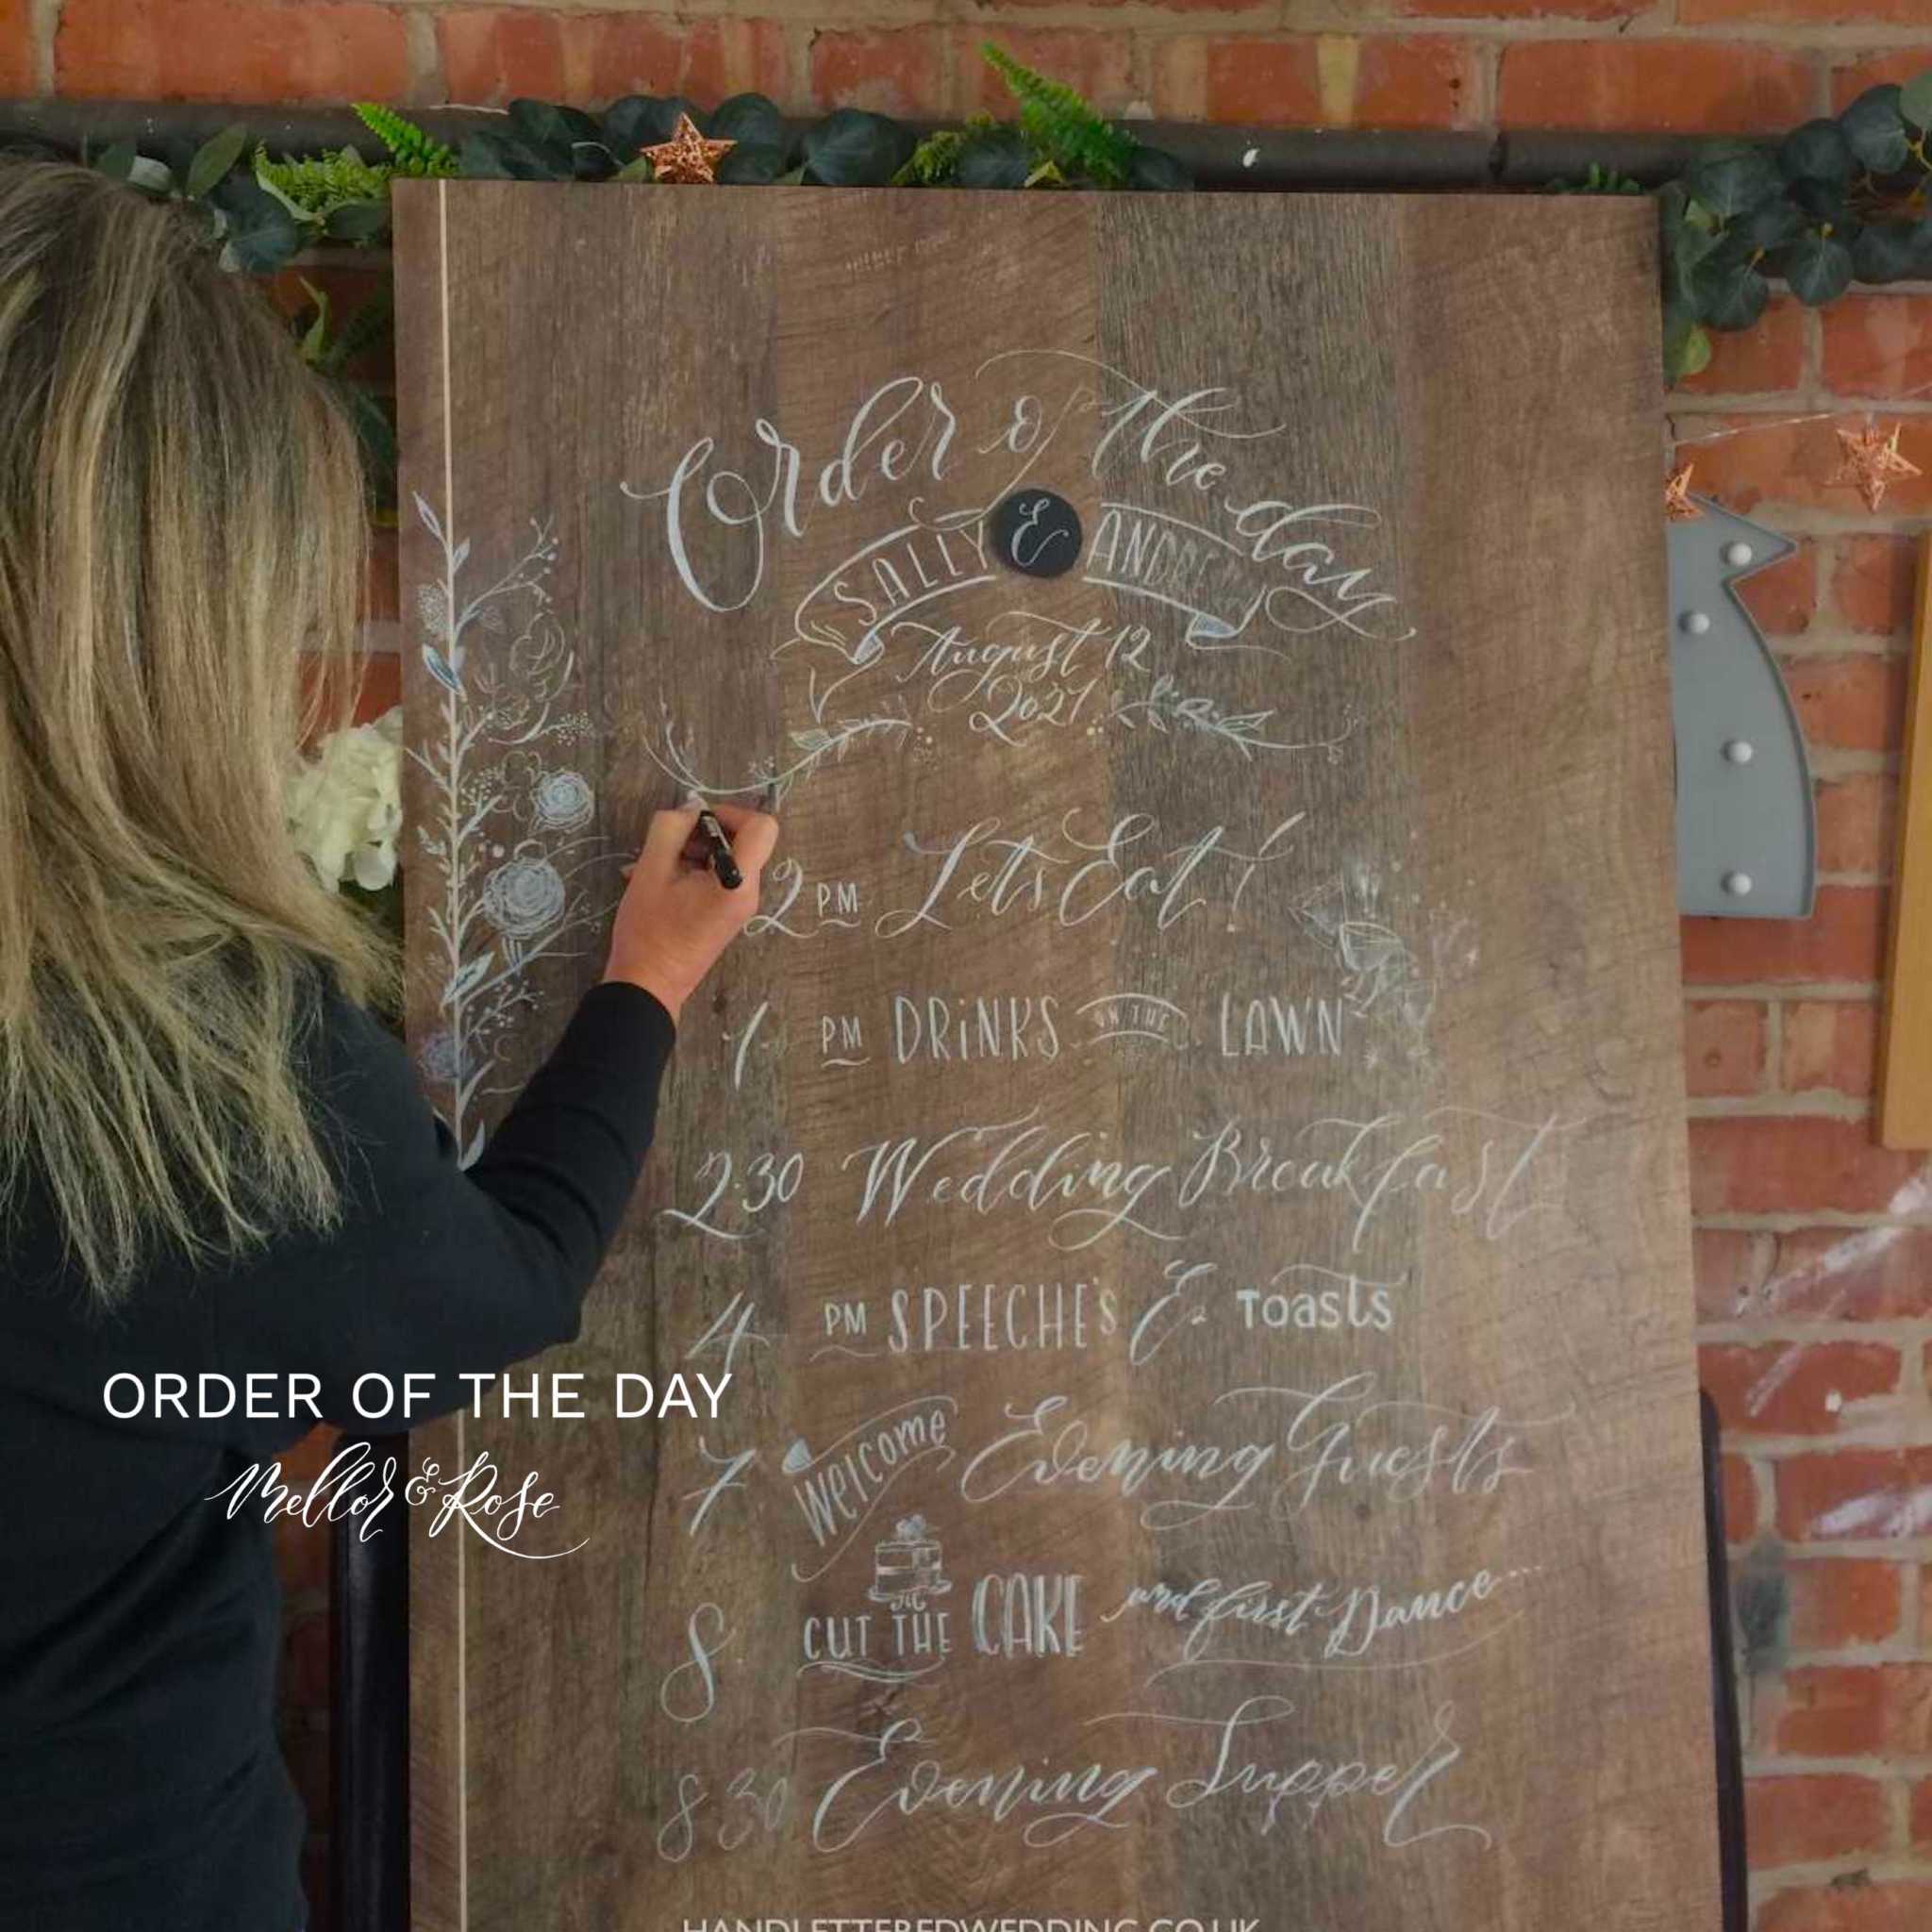 Order of the day
SALLY & ANDREW
August 12
2021
2 PM Lets Eat!
1 PM DRiNKS ON THE LAWN
2.30 Wedding Breakfast
4 PM SPEECHE'S & Toasts
7 Welcome Evening Guests
8 CUT THE CAKE and first Dance
8 30 Evening Supper
ORDER OF THE DAY
Mellor & Rose
HANDLETTEREDWEDDING.CO.UK